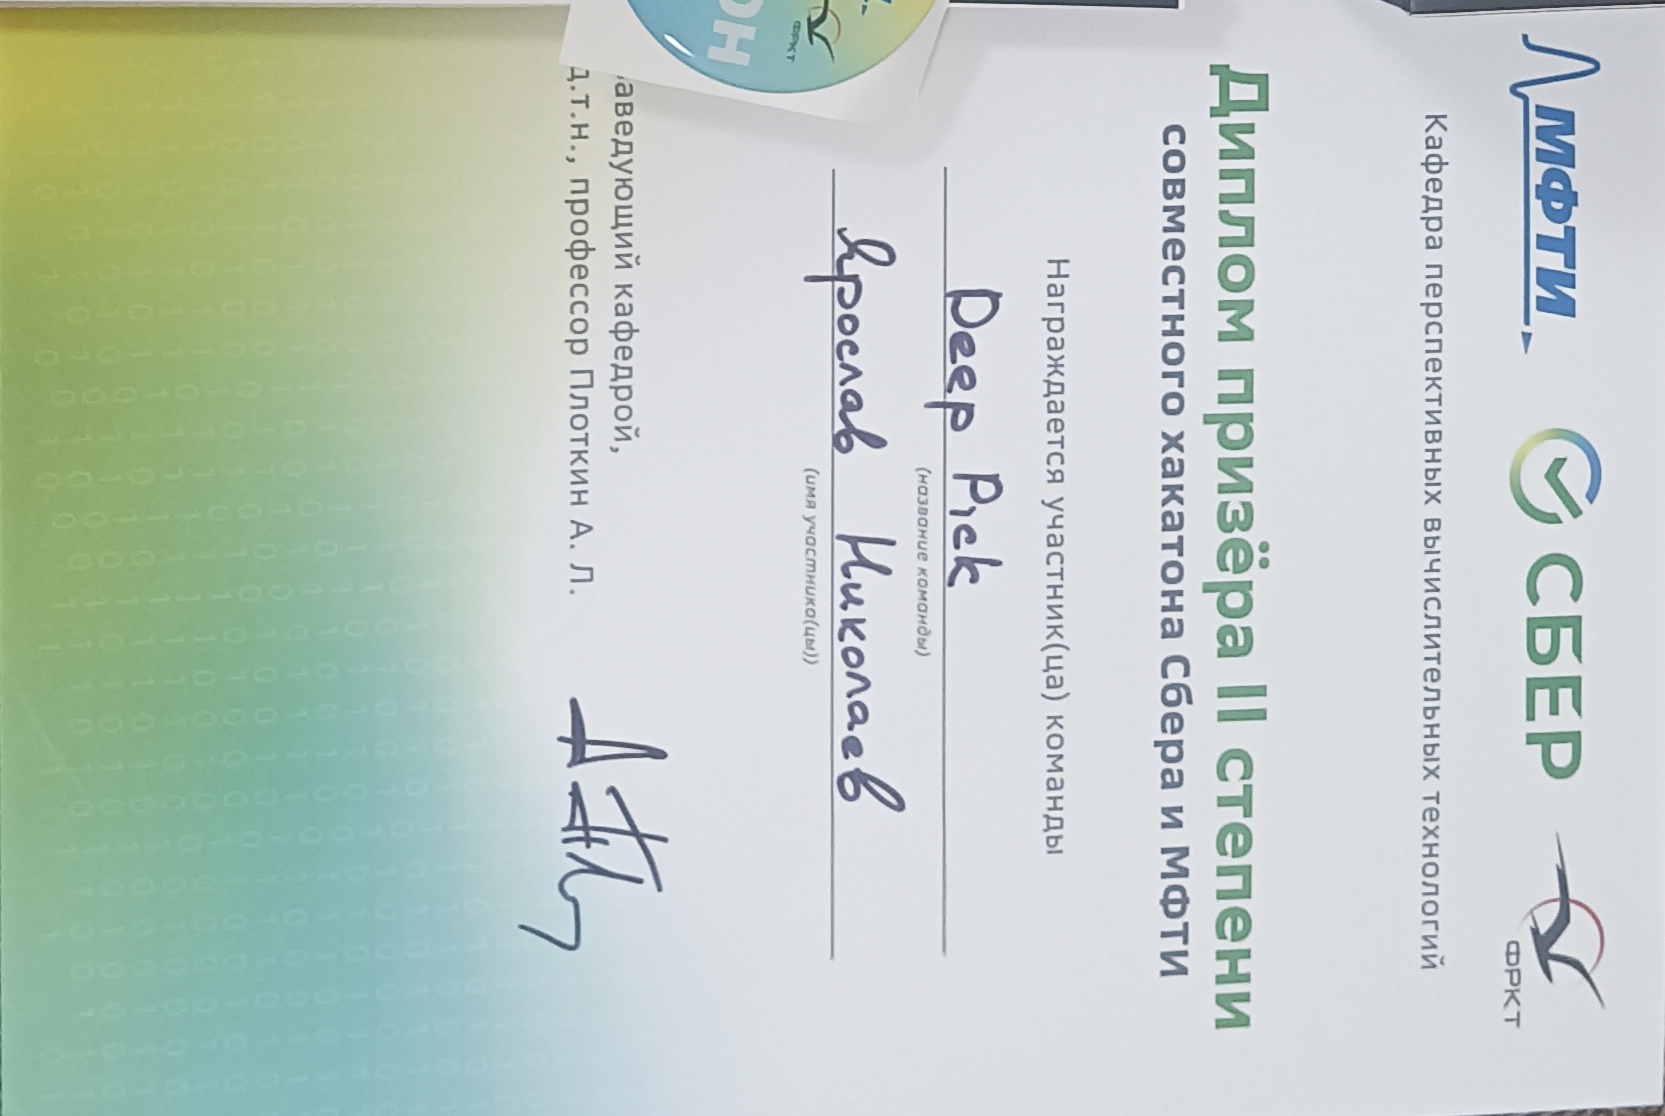 МФТИ СБЕР ФРКТ
Кафедра перспективных вычислительных технологий
Диплом призёра II степени
совместного хакатона Сбера и МФТИ
Награждается участник(ца) команды
Deep Pick
(название команды)
Ярослав Николаев
(имя участника(цы))
аведующий кафедрой,
д.т.н., профессор Плоткин А. Л.
ФРКТ
ОН